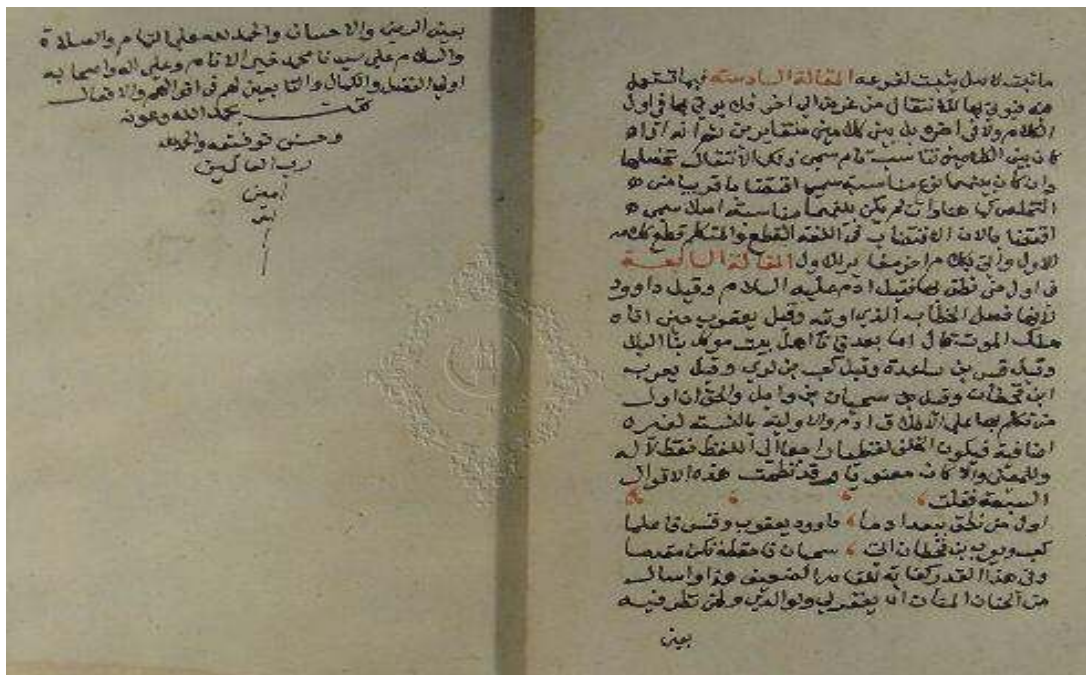 ما ثبت للاصل يثبت لفرعه المقالة السادسة فيما تستعمل
فيه فيؤتي بها للانتقال من غرض الي اخر فلا يوتي بها في اول
الكلام ولا في اخره بل بين كلامين متغايرين ثم انه ان
كان بين الكلامين تناسب تام سمي ذلك الانتقال تخلصا
وان كان بينهما نوع مناسبة سمي اقتضابا قريبا من
التخلص كما هنا وان لم يكن بينهما مناسبة اصلا سمي
اقتضابا لان الاقتضاب في اللغة القطع والمتكلم قطع كلامه
الاول واتي بكلام اخر مغاير للاول المقالة السابعة
في اول من نطق بها فقيل ادم عليه السلام وقيل داوود
لانها فصل الخطاب الذي اوتيه وقيل يعقوب حين اتاه
ملك الموت قال اما بعد فانا اهل بيت موكل بنا البلا
وقيل قس بن ساعدة وقيل كعب بن لوي وقيل يعرب
ابن قحطان وقيل سحبان بن وايل والحق ان اول
من تكلم بها علي الاطلاق ادم والاولية بالنسبة لغيره
اضافية فيكون الخلف لفظيا راجعا الي اللفظ فقط لا له
وللمعني والا كان معنويا وقد نظمت هذه الاقوال
السبعة فقلت
اول من نطق ببعد ادما داوود يعقوب وقس فاعلما
كعب ويعرب بن قحطان اتي سحبان فاحفظه
وفي هذا القدر كفاية هذا واسال
من الحنان المنان ان يغفر لي ولوالدي ولمن نظر فيه
بعين
بعين الرضي والاحسان والحمد لله علي التمام والصلاة
والسلام علي سيدنا محمد خير الانام وعلي اله واصحابه
اولي الفضل والكمال والتابعين لهم في اقوالهم والافعال
تمت بحمد الله وعونه
وحسن توفيقه والحمد لله
رب العالمين
امين